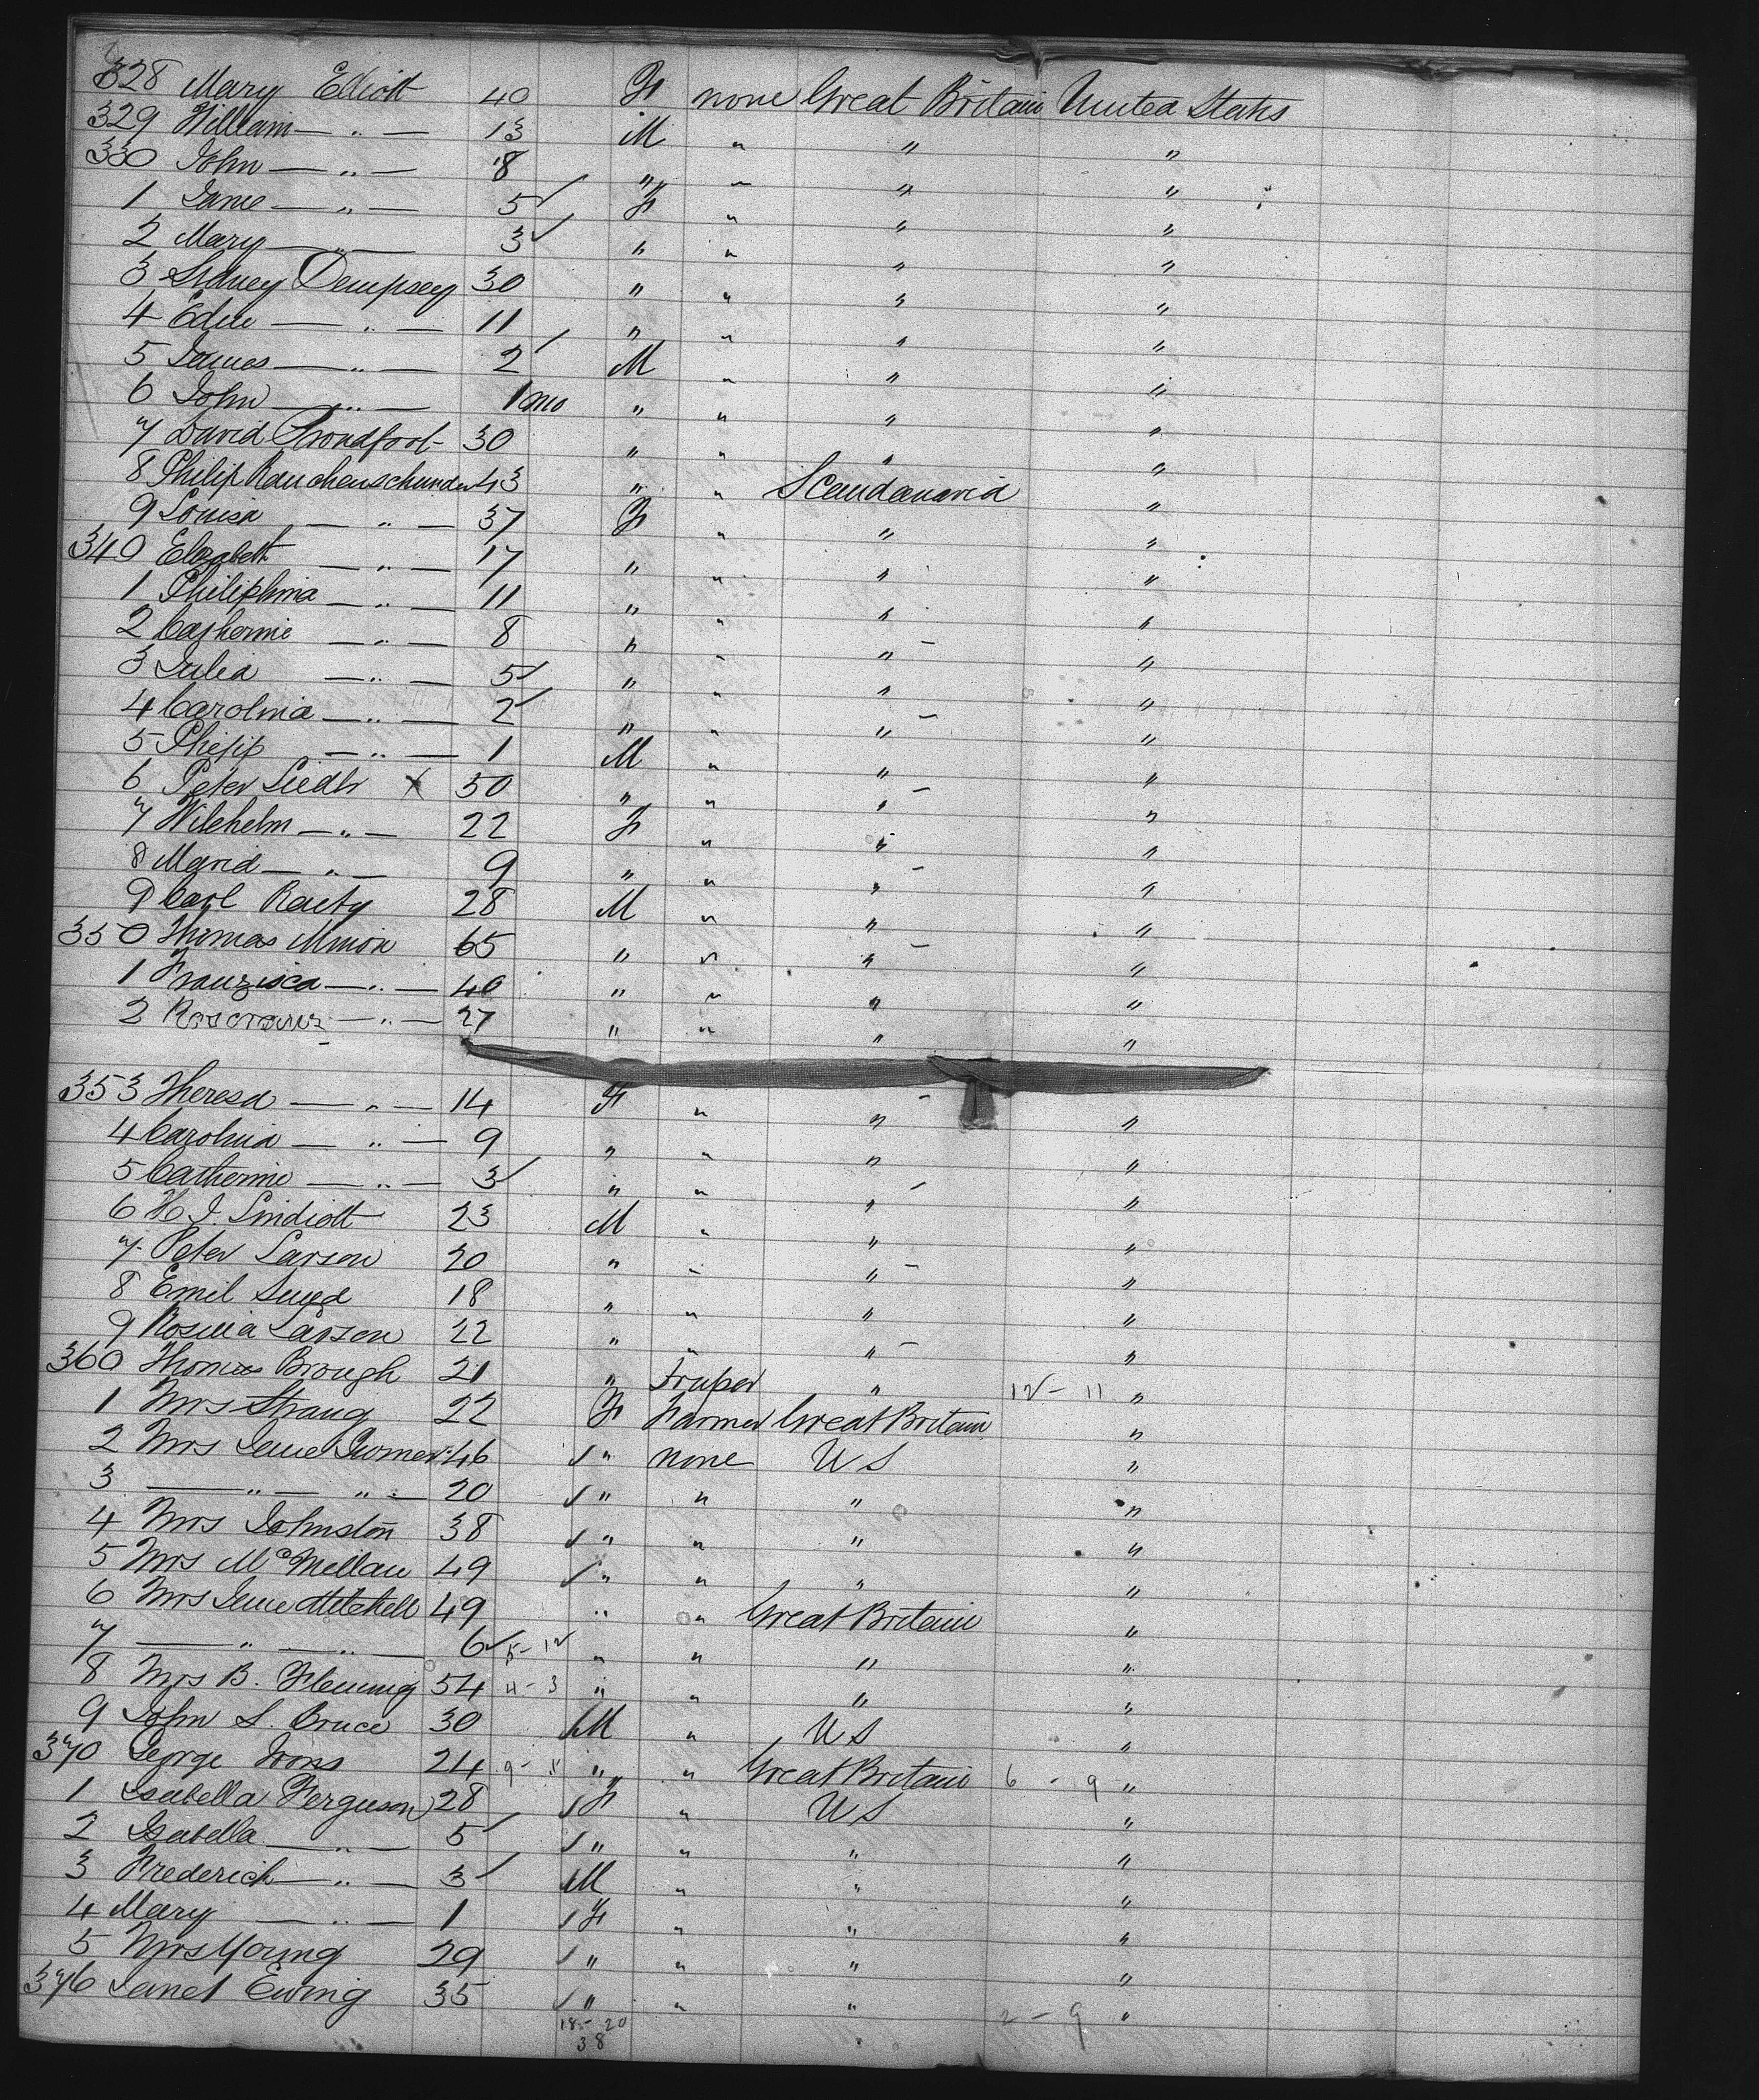 328 Mary Elliott 40 F none Great Britain United States
329 William — " — 13 M " " "
330 John — " — 8 " " " "
1 Jane — " — 5 F " " "
2 Mary — " — 3 " " " "
3 Sidney Dempsey 30 " " " "
4 — " — 11 " " " "
5 James — " — 2 M " " "
6 John — " — 1 mo " " " "
7 David Proudfoot 30 " " " "
8 Philip 43 " " Scandanavia "
9 Louisa — " — 37 F " " "
340 Elizabeth — " — 17 " " " "
1 Philiphina — " — 11 " " " "
2 Catherine — " — 8 " " " "
3 Julia — " — 5 " " " "
4 Carolina — " — 2 " " " "
5 Philip — " — 1 M " " "
6 Peter Liedlr X 50 " " " "
7 Wilehelm — " — 22 F " " "
8 Maria — " — 9 " " " "
9 Carl 28 M " " "
350 Thomas 65 " " " "
1 Franzisca — " — 40 " " " "
2 — " — 27 " " " "
353 Theresa — " — 14 F " " "
4 Carolina — " — 9 " " " "
5 Catherine — " — 3 " " " "
6 23 M " " "
7 Peter Larson 20 " " " "
8 Emil 18 " " " "
9 Rosina Larson 22 " " " "
360 Thomas Brough 21 " Draper " 12 - 11 "
1 Mrs Strang 22 F Farmer Great Britain "
2 Mrs Jane 46 " none U S "
3 — " — " — 20 " " " "
4 Mrs Johnston 38 " " " "
5 Mrs McMillan 49 " " " "
6 Mrs Jane Mitchell 49 " " Great Britain "
7 — " — " — 6 5 - 12 " " " "
8 Mrs B. Fleming 54 4 - 3 " " " "
9 John S. Bruce 30 M " U S "
370 George Irons 24 9 - 11 " " Great Britain 6 - 9 "
1 Isabella Ferguson 28 F " U S "
2 Isabella — " — 5 " " " "
3 Frederick — " — 3 M " " "
4 Mary — " — 1 F " " "
5 Mrs Young 29 " " " "
376 Janet Ewing 35 " " " "
18 - 20 2 - 9
38